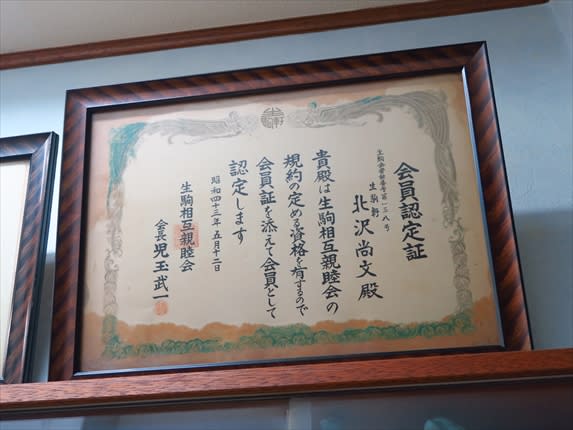 会員認定証
生駒軒
北沢尚文殿
貴殿は生駒相互親睦会の
規約の定める資格を有するので
会員証を添えて会員として
認定します
昭和四十三年五月十二日
生駒相互親睦会
会長 児玉武一